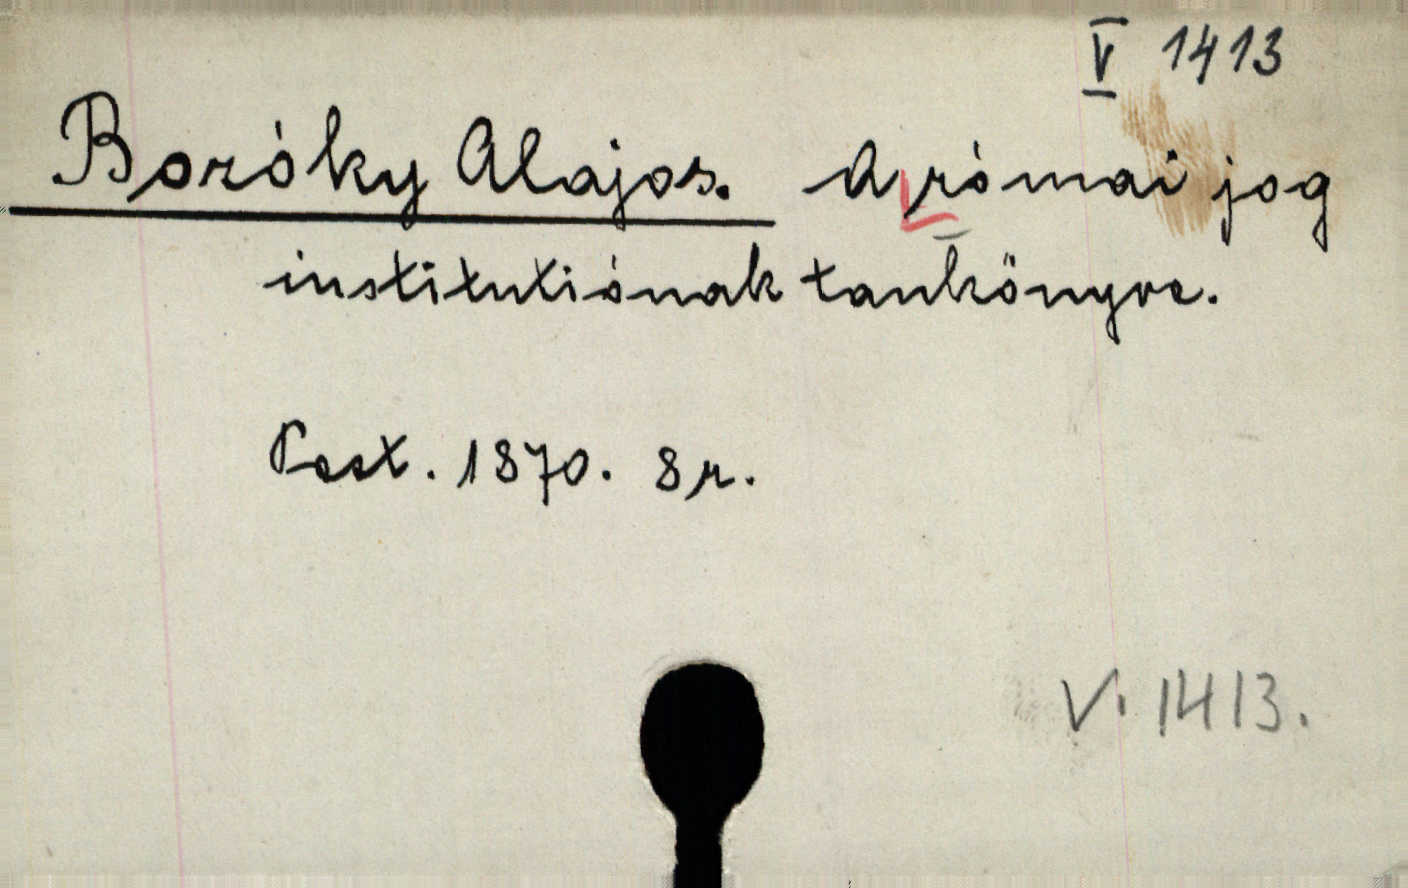 V 1413
Bozóky Alajos. A római jog
institutiónak tankönyve.
Pest. 1870. 8r.
V. 1413.